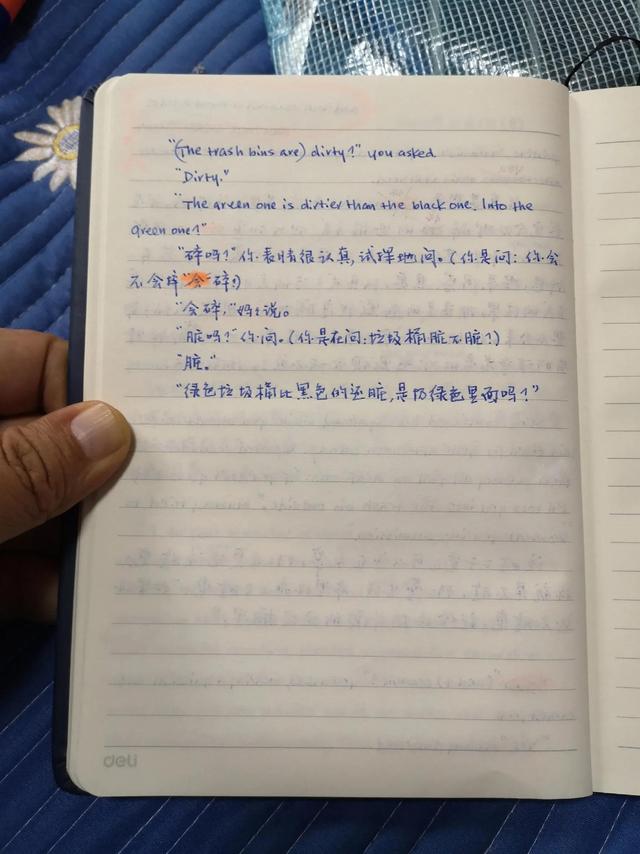 "(The trash bins are) dirty?" you asked.
"Dirty."
"The green one is dirtier than the black one. Into the
green one?"
"碎吗?"你表情很认真,试探地问。(你是问:你会
不会碎"会"碎?)
"会碎,"妈妈说。
"脏吗?"你问。(你是在问:垃圾桶脏不脏?)
"脏。"
"绿色垃圾桶比黑色的还脏,是扔绿色里面吗?"
deli